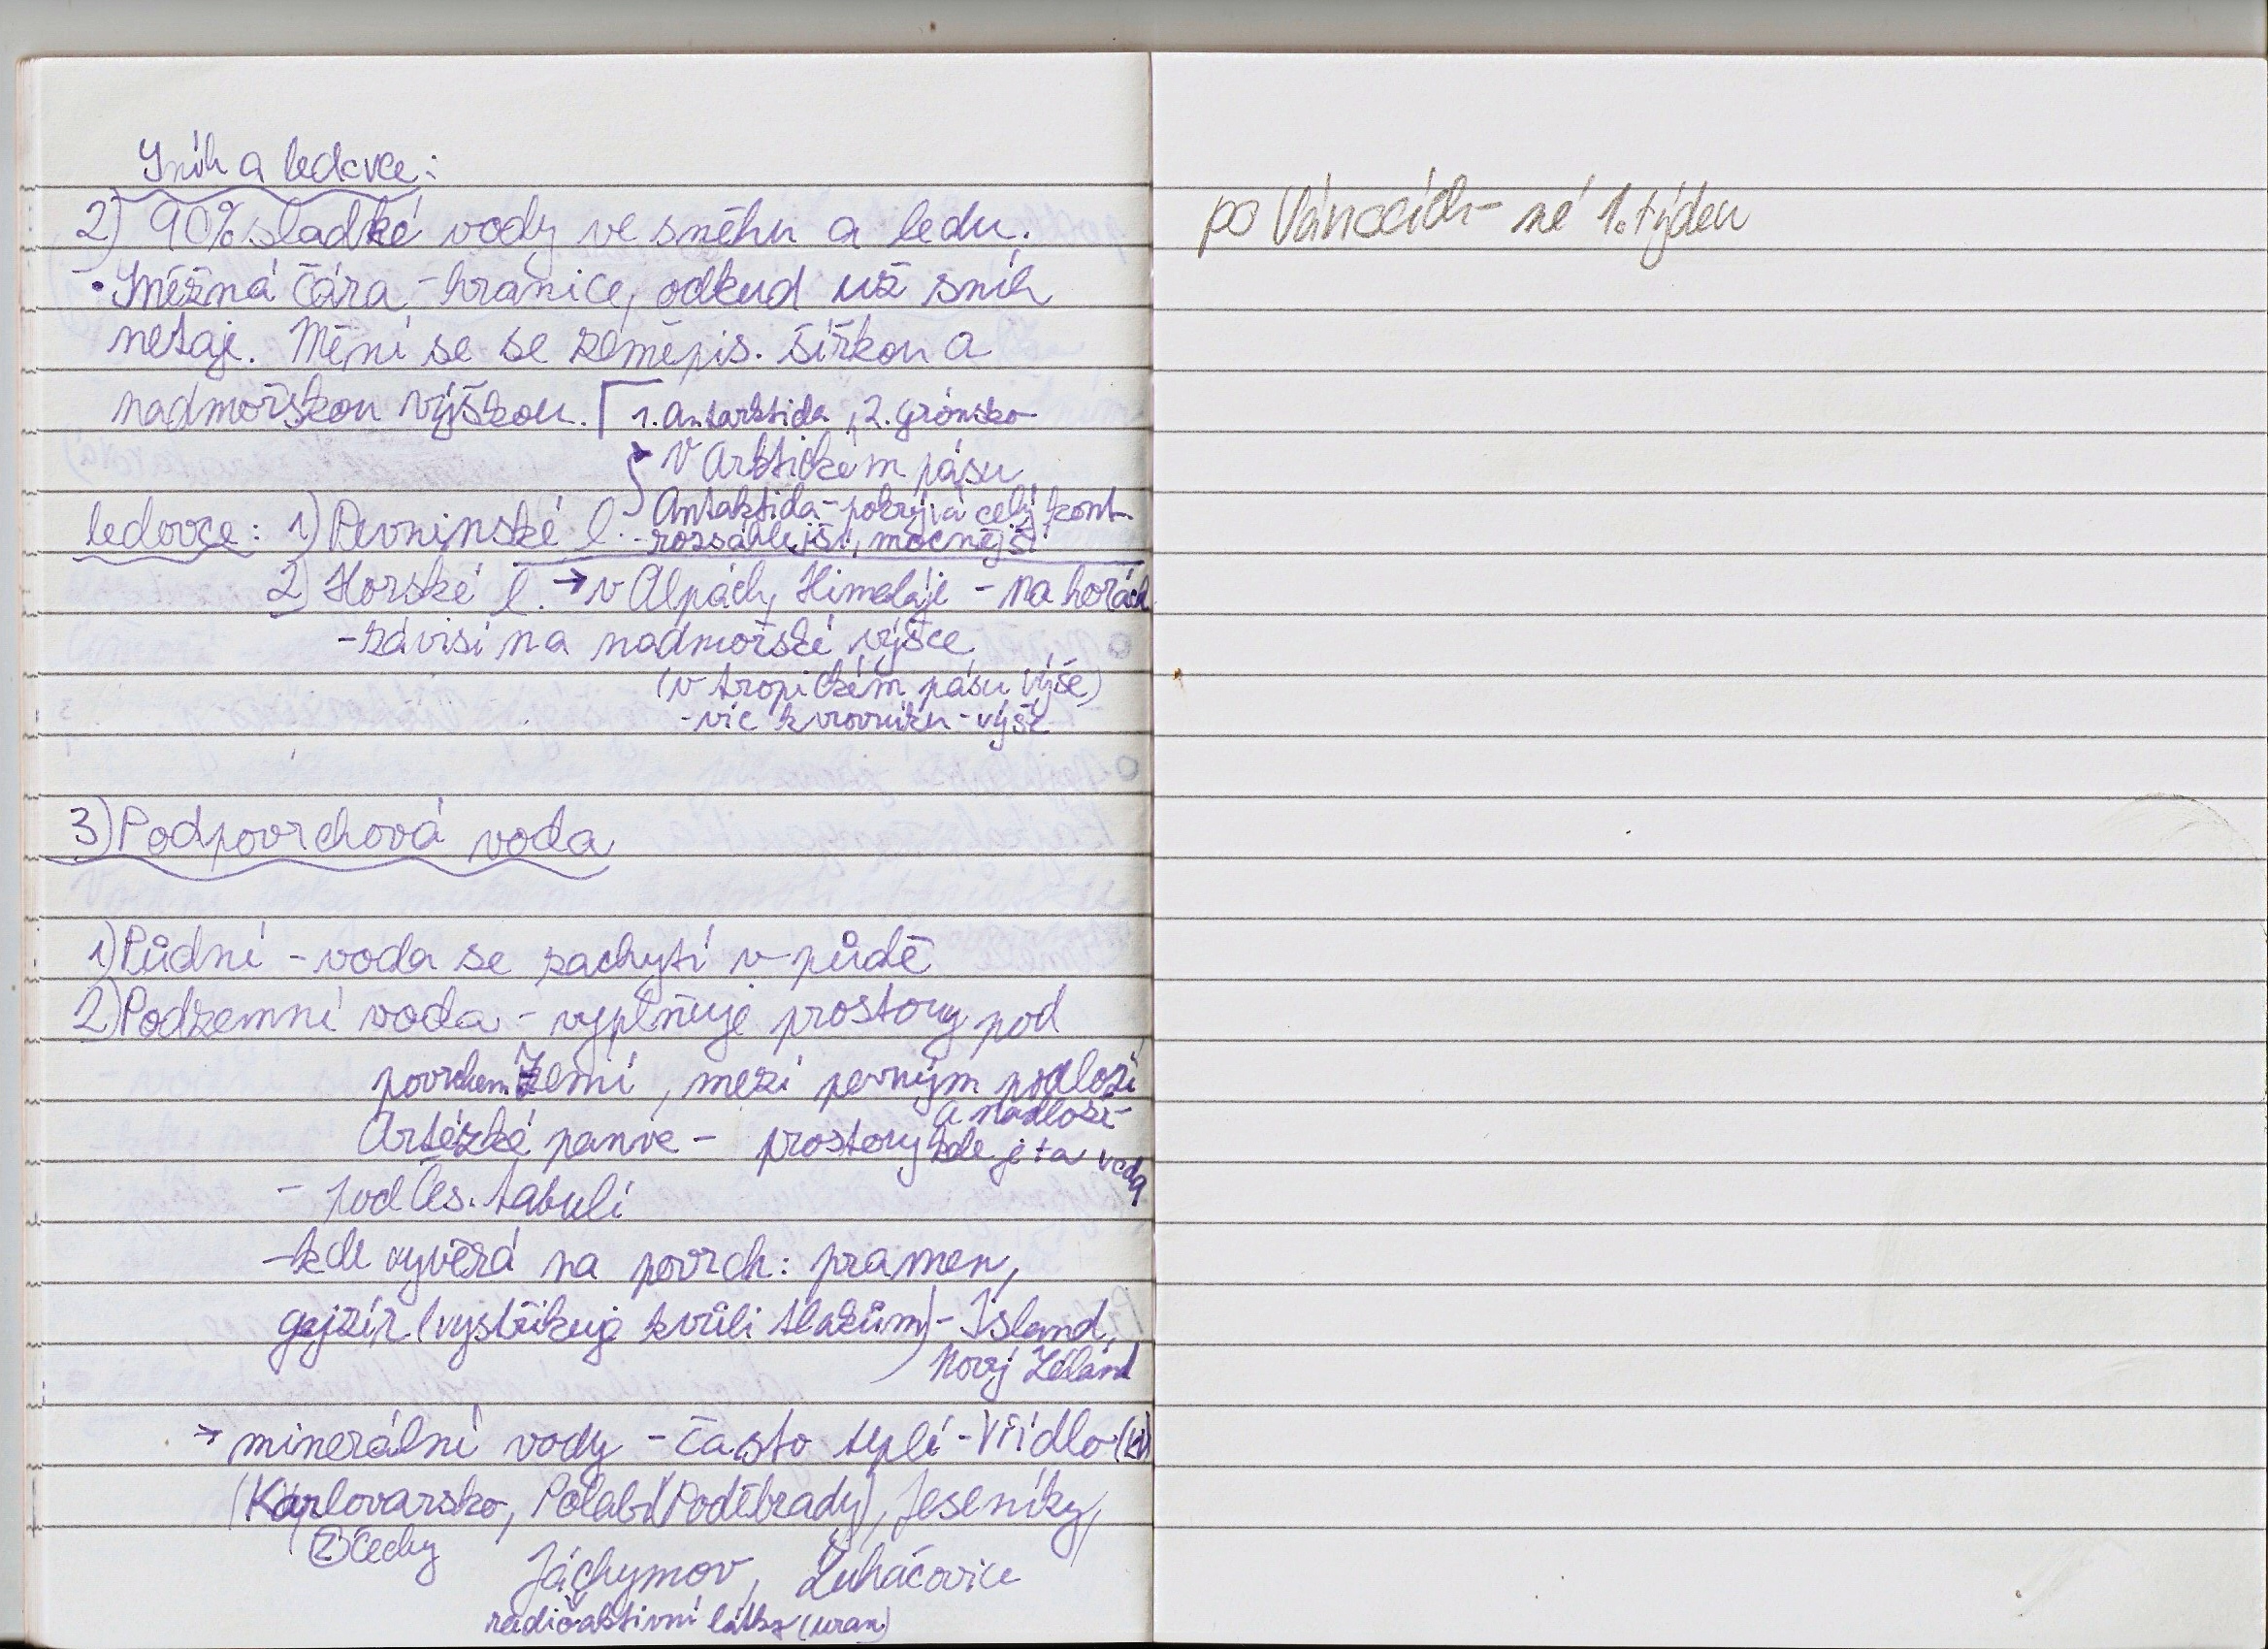 Sníh a ledovce:
2) 90% sladké vody ve sněhu a ledu.
• Sněžná čára - hranice, odkud už sníh
netaje. Mění se se zeměpis. šířkou a
nadmořskou výškou. 1. Antarktida, 2. Grónsko
V Arktickém pásu
Antaktida - pokrývá celý kont.
ledovce: 1) Pevninské l. - rozsáhlejší, mocnější
2) Horské l. → v Alpách, Himaláje - na horách
- závisí na nadmořské výšce
(v tropickém pásu výše)
- víc k rovníku - výš
3) Podpovrchová voda
1) Půdní - voda se zachytí v půdě
2) Podzemní voda - vyplňuje prostory pod
povrchem Zemí, mezi pevným podloží
a nadloží
Artézké panve - prostory kde je ta voda
- pod Čes. tabulí
- kde vyvěrá na povrch: pramen,
gejzír (vystřikuje kvůli tlakům) - Island,
Nový Zéland
→ minerální vody - často teplí - Vřídlo (KV)
(Karlovarsko, Polabí (Poděbrady), Jeseníky,
Z Čechy
Jáchymov, Luhačovice
radioaktivní látka (uran)
po Vánocích - né 1. týden